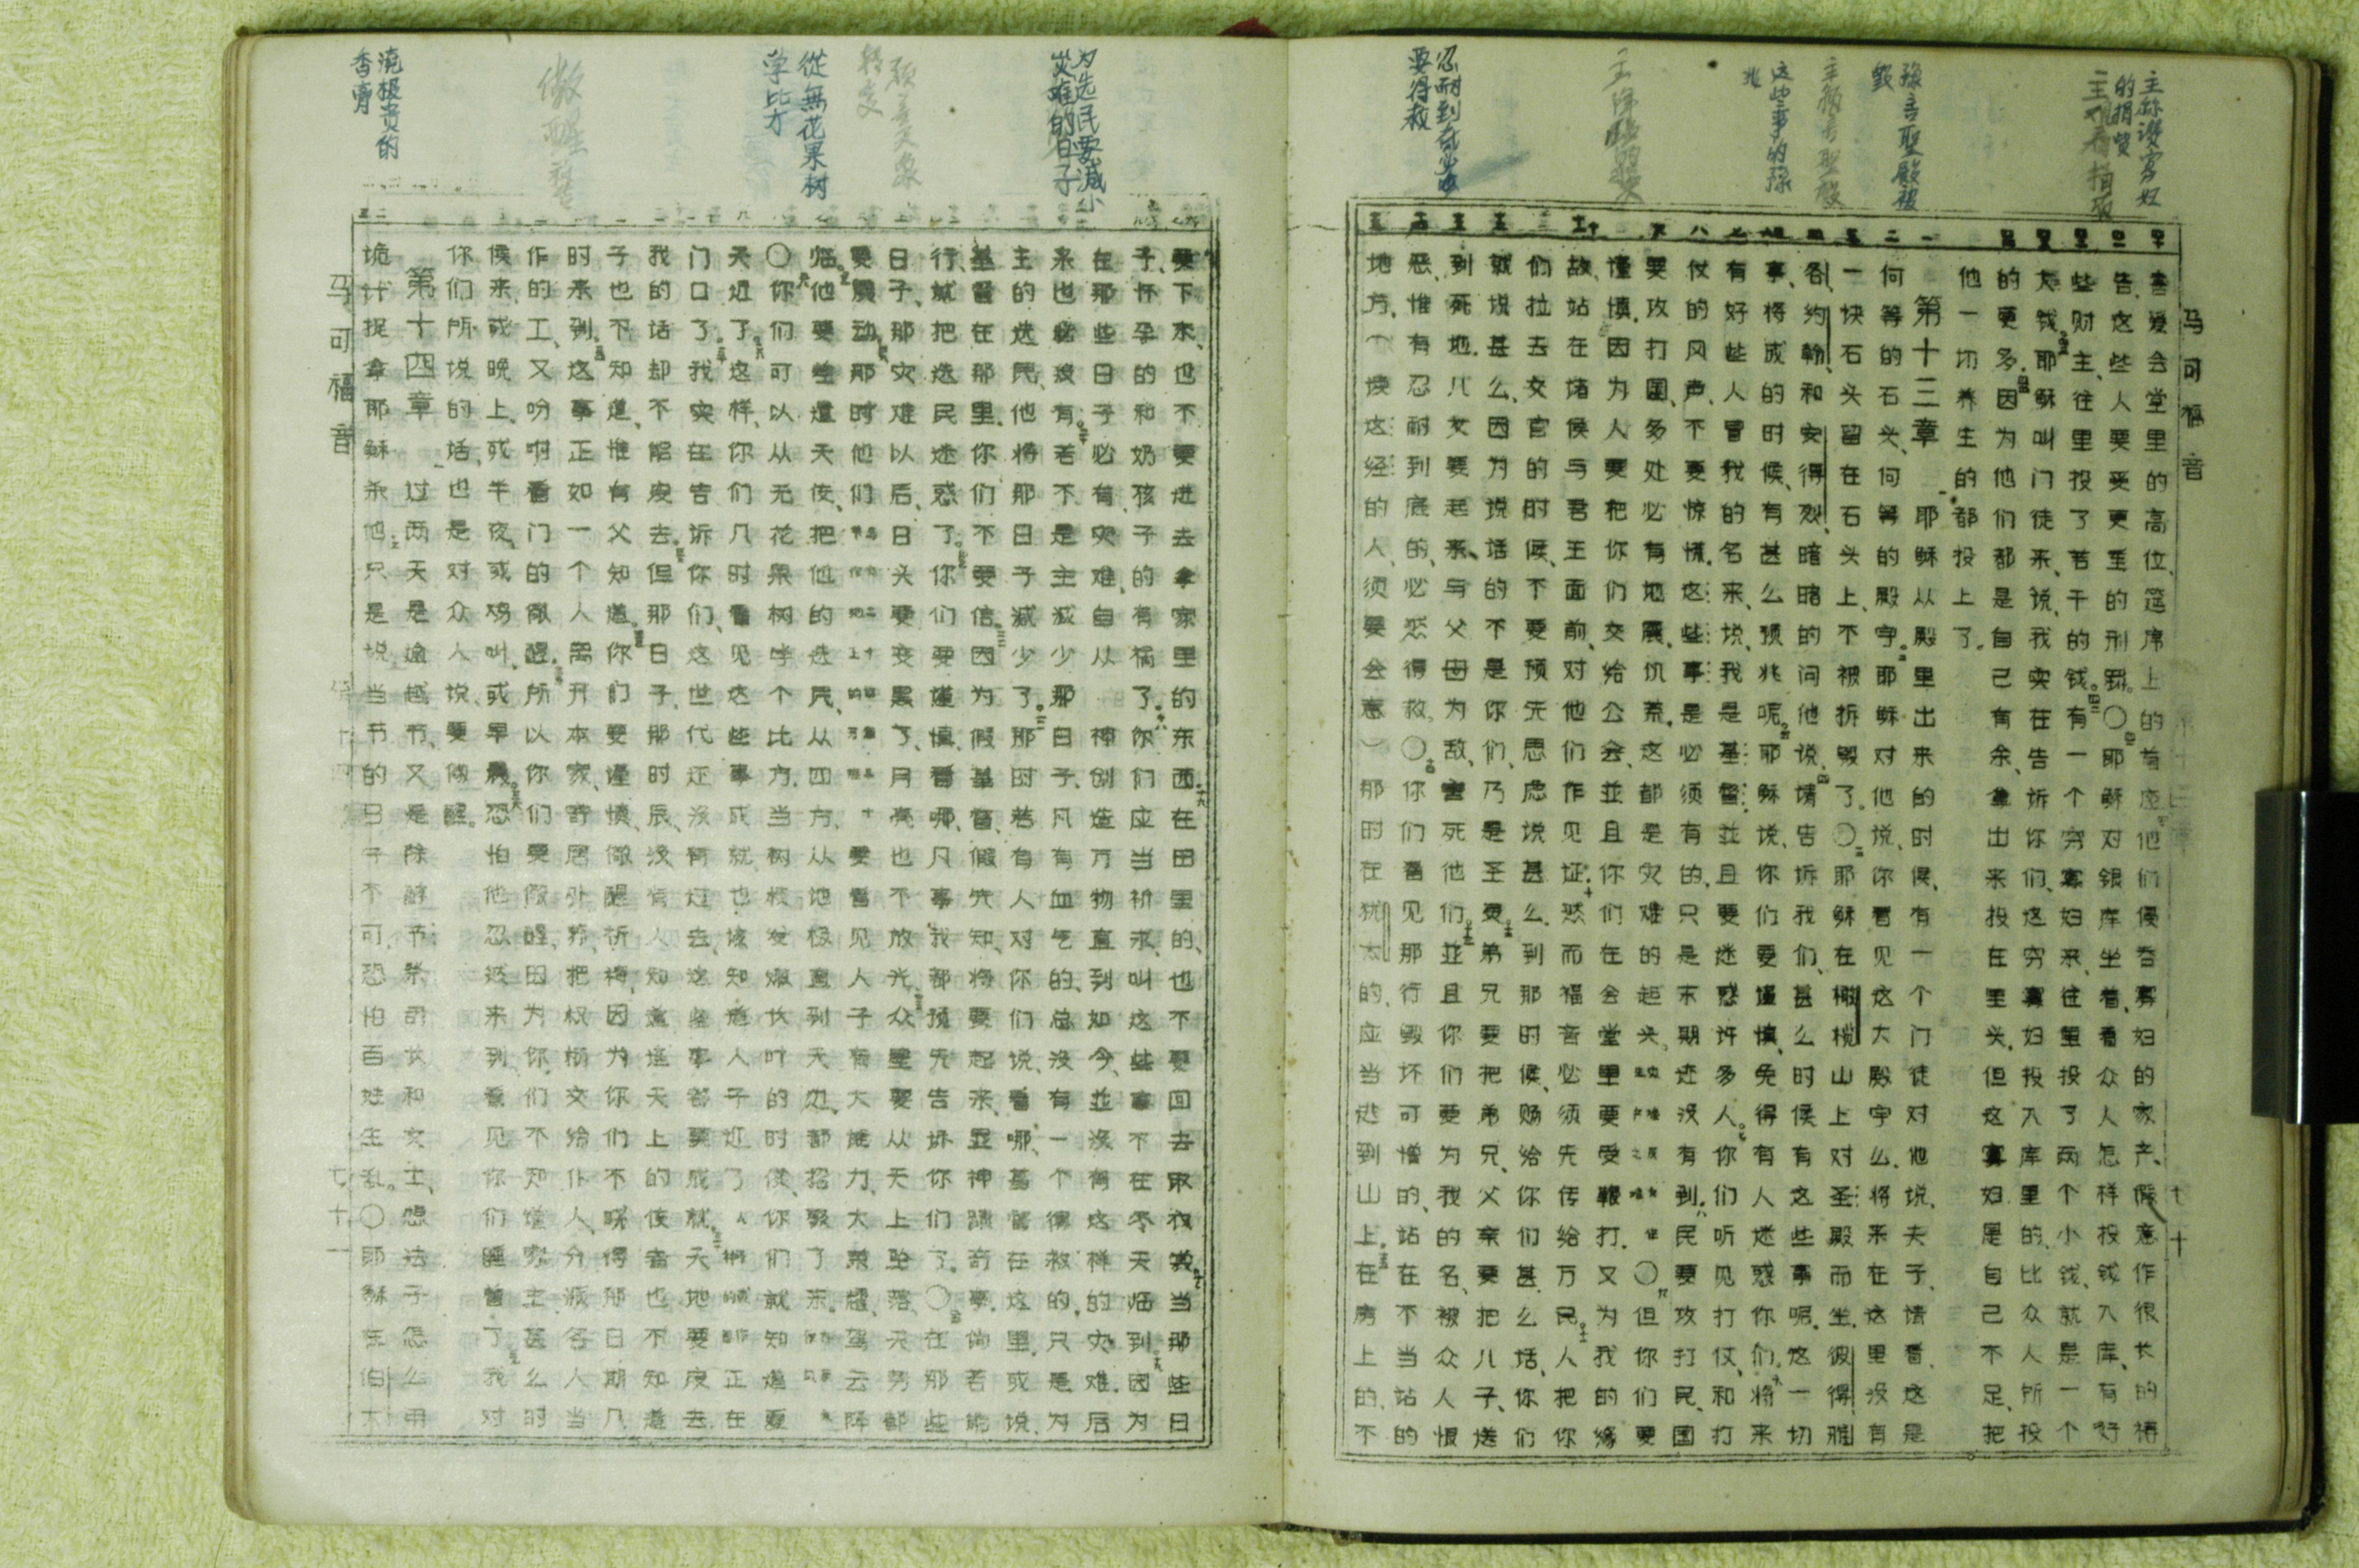 主称讚寡妇
的捐赀
豫言聖殿被
毁
这些事的豫
兆
忍耐到底必
要得救
马可福音
喜爱会堂里的高位、筵席上的首座、他们侵吞寡妇的家产、假意作很长的祷
告、这些人要受更重的刑罚。〇耶稣对银库坐着、看众人怎样投钱入库、有好
些财主、往里投了若干的钱。有一个穷寡妇来、往里投了两个小钱、就是一个
大钱。耶稣叫门徒来、说、我实在告诉你们、这穷寡妇投入库里的、比众人所投
的更多。因为他们都是自己有余、拿出来投在里头、但这寡妇是自己不足、把
他一切养生的都投上了。
第十三章 耶稣从殿里出来的时候、有一个门徒对他说、夫子、请看、这是
何等的石头、何等的殿宇。耶稣对他说、你看见这大殿宇么、将来在这里没有
一块石头留在石头上、不被拆毁了。〇耶稣在橄榄山上对圣殿而坐、彼得、雅
各、约翰、和安得烈、暗暗的问他说、请告诉我们、甚么时候有这些事呢、这一切
事、将成的时候、有甚么预兆呢。耶稣说、你们要谨慎、免得有人迷惑你们。将来
有好些人冒我的名来、说、我是基督、並且要迷惑许多人。你们听见打仗、和打
仗的风声、不要惊慌、这些事是必须有的、只是末期还没有到。民要攻打民、国
要攻打国、多处必有地震、饥荒、这都是灾难的起头。〇但你们要
谨慎、因为人要把你们交给公会、並且你们在会堂里要受鞭打、又为我的缘
故、站在诸侯与君王面前、对他们作见证。然而福音必须先传给万民。人把你
们拉去交官的时候、不要预先思虑说甚么、到那时候、赐给你们甚么话、你们
就说甚么、因为说话的不是你们、乃是圣灵。弟兄要把弟兄、父亲要把儿子、送
到死地、儿女要起来与父母为敌、害死他们、並且你们要为我的名、被众人恨
恶、惟有忍耐到底的、必然得救。〇你们看见那行毁坏可憎的、站在不当站的
地方、（读这经的人、须要会意）那时在犹太的、应当逃到山上。在房上的、不
七十
为选民要减少
灾难的日子
從無花果树
学比方
儆醒
澆极贵的
香膏
要下来、也不要进去拿家里的东西、在田里的、也不要回去取衣裳。当那些日
子、怀孕的和奶孩子的有祸了。你们应当祈求、叫这些事不在冬天临到。因为
在那些日子必有灾难、自从 神创造万物直到如今、並没有这样的灾难、后
来也必没有。若不是主减少那日子、凡有血气的、总没有一个得救的、只是为
主的选民、他将那日子减少了。那时若有人对你们说、看哪、基督在这里、或说
基督在那里、你们不要信。因为假基督、假先知、将要起来、显神蹟奇事、倘若能
行、就把选民迷惑了。你们要谨慎、看哪、凡事我都预先告诉你们了。〇在那些
日子、那灾难以后、日头要变黑了、月亮也不放光、众星要从天上坠落、天势都
要震动。那时他们要看见人子有大能力、大荣耀、驾云降
临。他要差遣天使、把他的选民、从四方、从地极直到天处、都招聚了来。
〇你们可以从无花果树学个比方、当树枝发嫩长叶的时候、你们就知道夏
天近了。这样、你们几时看见这些事成就、也该知道人子近了、正在
门口了。我实在告诉你们、这世代还没有过去、这些事都要成就。天地要废去
我的话却不能废去。但那日子、那时辰、没有人知道、连天上的使者也不知道
子也不知道、惟有父知道。你们要谨慎、儆醒祈祷、因为你们不晓得那日期几
时来到。这事正如一个人离开本家、寄居外邦、把权柄交给仆人、分派各人当
作的工、又吩咐看门的儆醒。所以你们要儆醒、因为你们不知道家主甚么时
候来、或晚上、或半夜、或鸡叫、或早晨。恐怕他忽然来到、看见你们睡着了。我对
你们所说的话、也是对众人说、要儆醒。
第十四章 过两天是逾越节、又是除酵节、祭司长和文士、想法子怎么用
诡计捉拿耶稣杀他。只是说、当节的日子不可、恐怕百姓生乱。〇耶稣在伯大
马可福音
第十四章
七十一